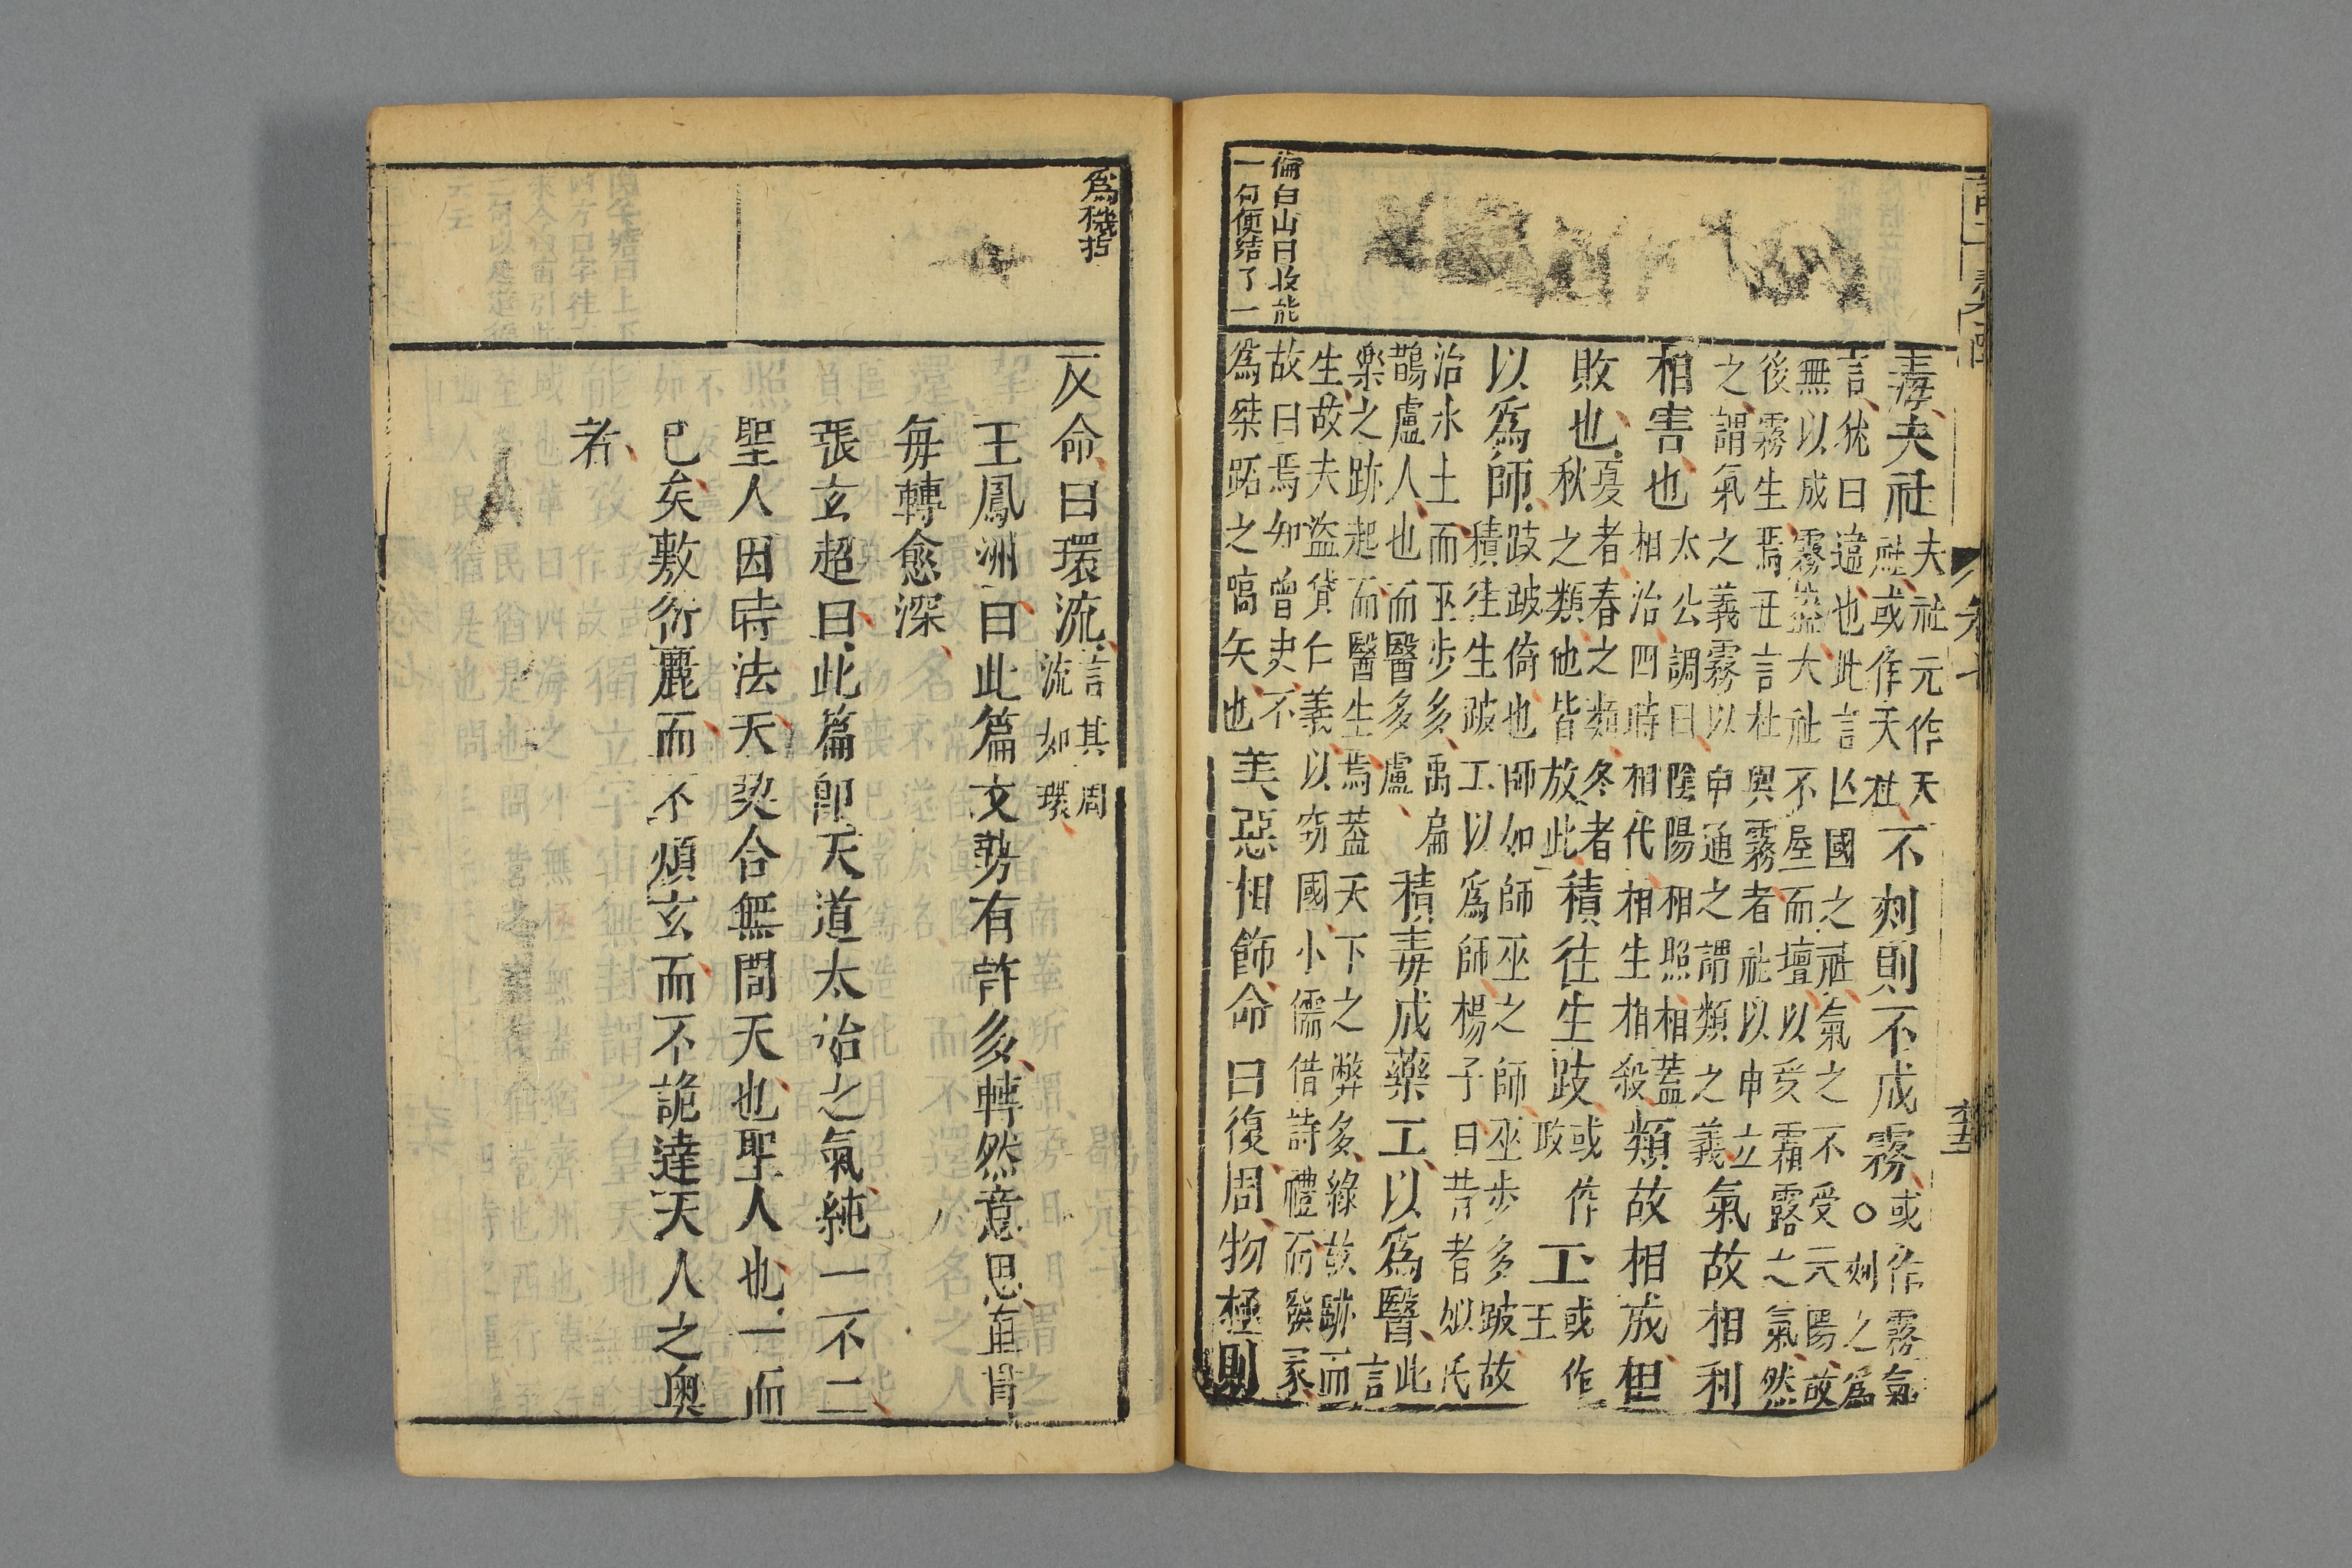 倫白山曰收能
一句便結了一
毒夫社夫社元作天社或作天社不刻則不成霧或作霧氣○刻之爲
言猶曰違也此言亾國之社氣之不受元陽故
無以成霧盖大社不屋而壇以受霜露之氣然
後霧生焉丑言社與霧者社以申立
之謂氣之義霧以申通之謂類之義氣故相利
相害也太公調曰陰陽相照相蓋相治四時相代相生相殺類故相成相
敗也夏者春之類冬者秋之類他皆放此積往生跂或作政工或作王
以爲師跂跛倚也師如師巫之師巫步多跛故積往生跛工以爲師楊子曰昔者姒氏
治水土而巫步多禹扁鵲盧人也而醫多盧積毒成藥工以爲醫此言
樂之跡起而醫生焉蓋天下之弊多緣故跡而
生故夫盜貸仁義以窃國小儒借詩禮而發冢
故曰焉知曾史不爲桀跖之嚆矢也美惡相飾命曰復周物極則
爲機括
反命曰環流言其周流如環
王鳳洲曰此篇文勢有許多轉然意思直肯
毎轉愈深
張玄超曰此篇卽天道太冶之氣純一不二
聖人因時法天契合無間天也聖人也一而
已矣敷衍麗而不煩玄而不詭達天人之奧
者